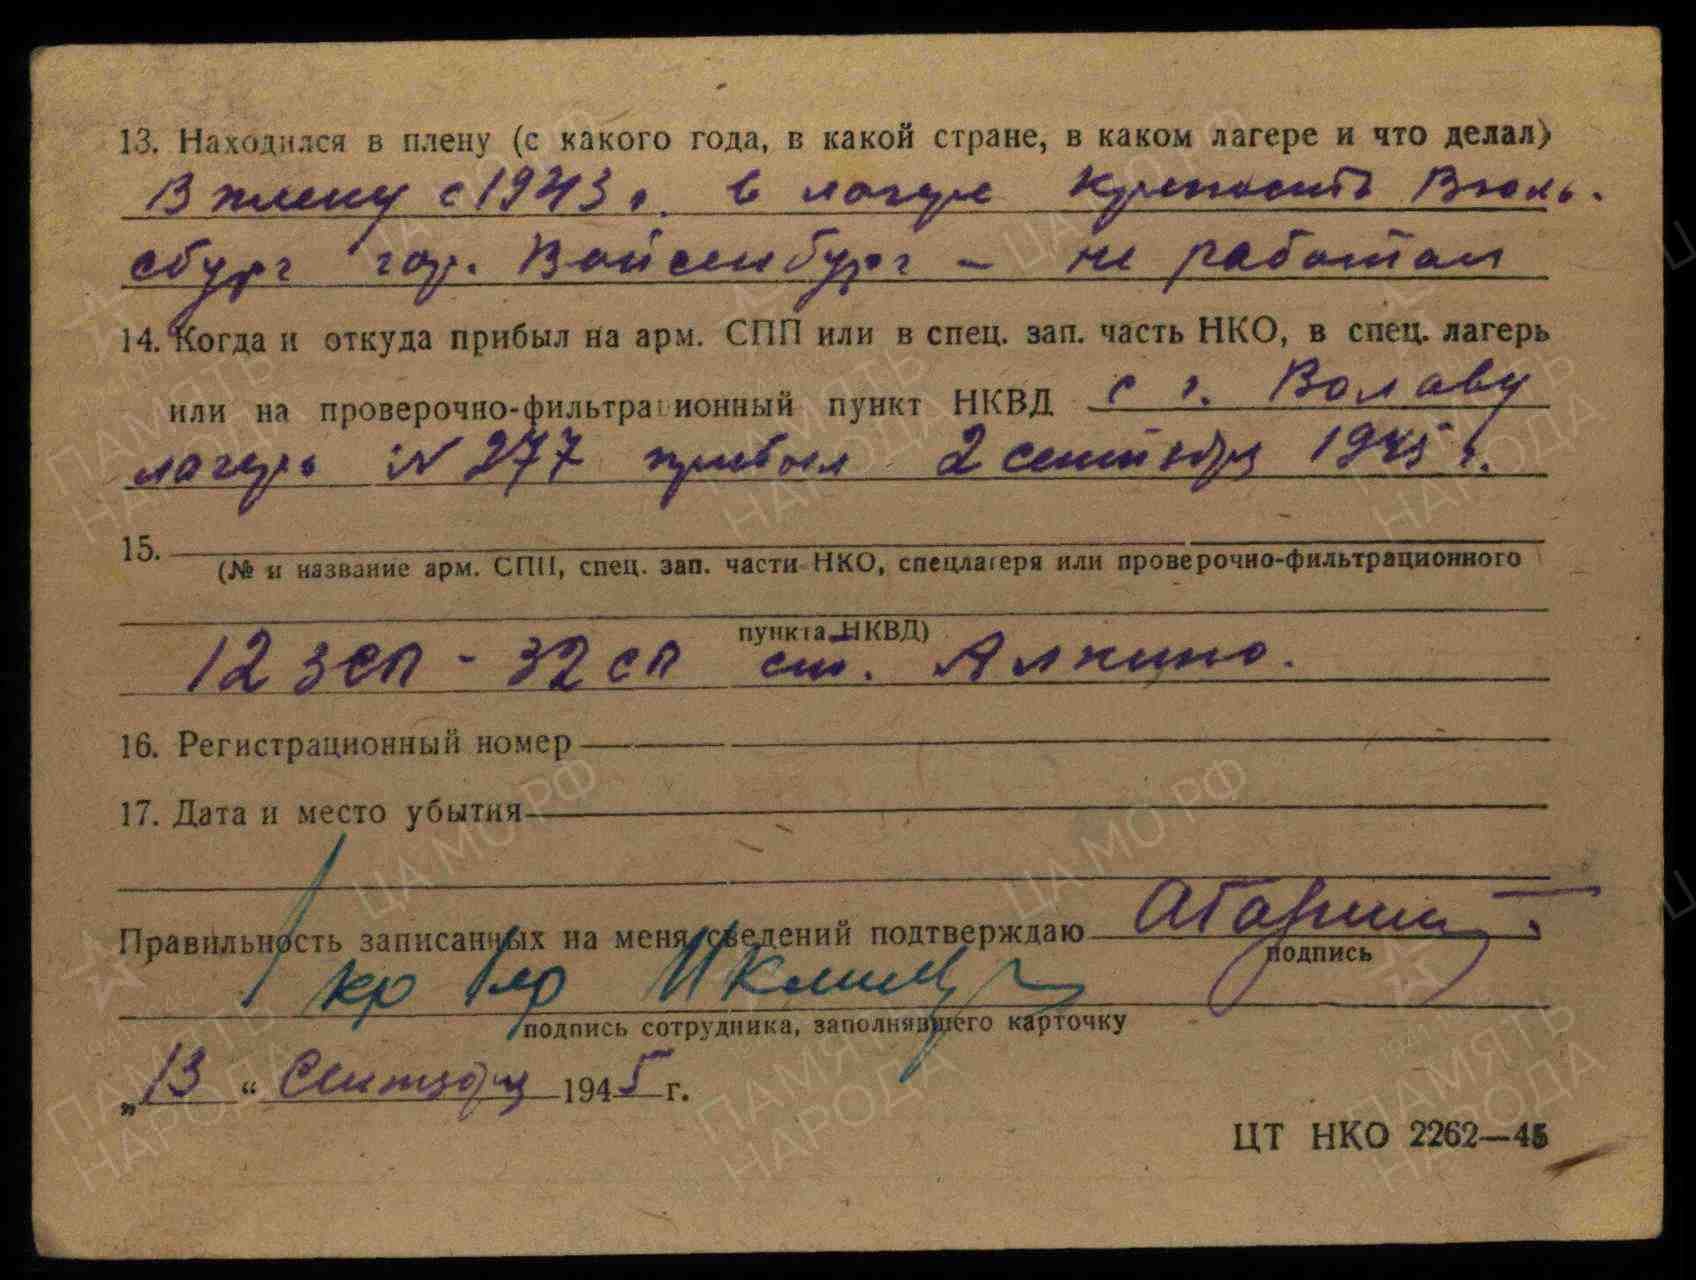 13. Находился в плену (с какого года, в какой стране, в каком лагере и что делал)
В плену с 1943 г. в лагере крепость Вюль-
сбург гор. Вайсенбург – не работал
14. Когда и откуда прибыл на арм. СПП или в спец. зап. часть НКО, в спец. лагерь
или на проверочно-фильтрационный пункт НКВД с г.
лагерь N 277 прибыл 2 сентября 1945 г.
15.
(№ и название арм. СПП, спец. зап. части НКО, спецлагеря или проверочно-фильтрационного
пункта НКВД)
12 зсп - 32 сп ст. Алкино.
16. Регистрационный номер
17. Дата и место убытия
Правильность записанных на меня сведений подтверждаю
подпись
подпись сотрудника, заполнявшего карточку
„13“ Сентября 1945 г.
ЦТ НКО 2262—45
ПАМЯТЬ НАРОДА
ЦА МО РФ